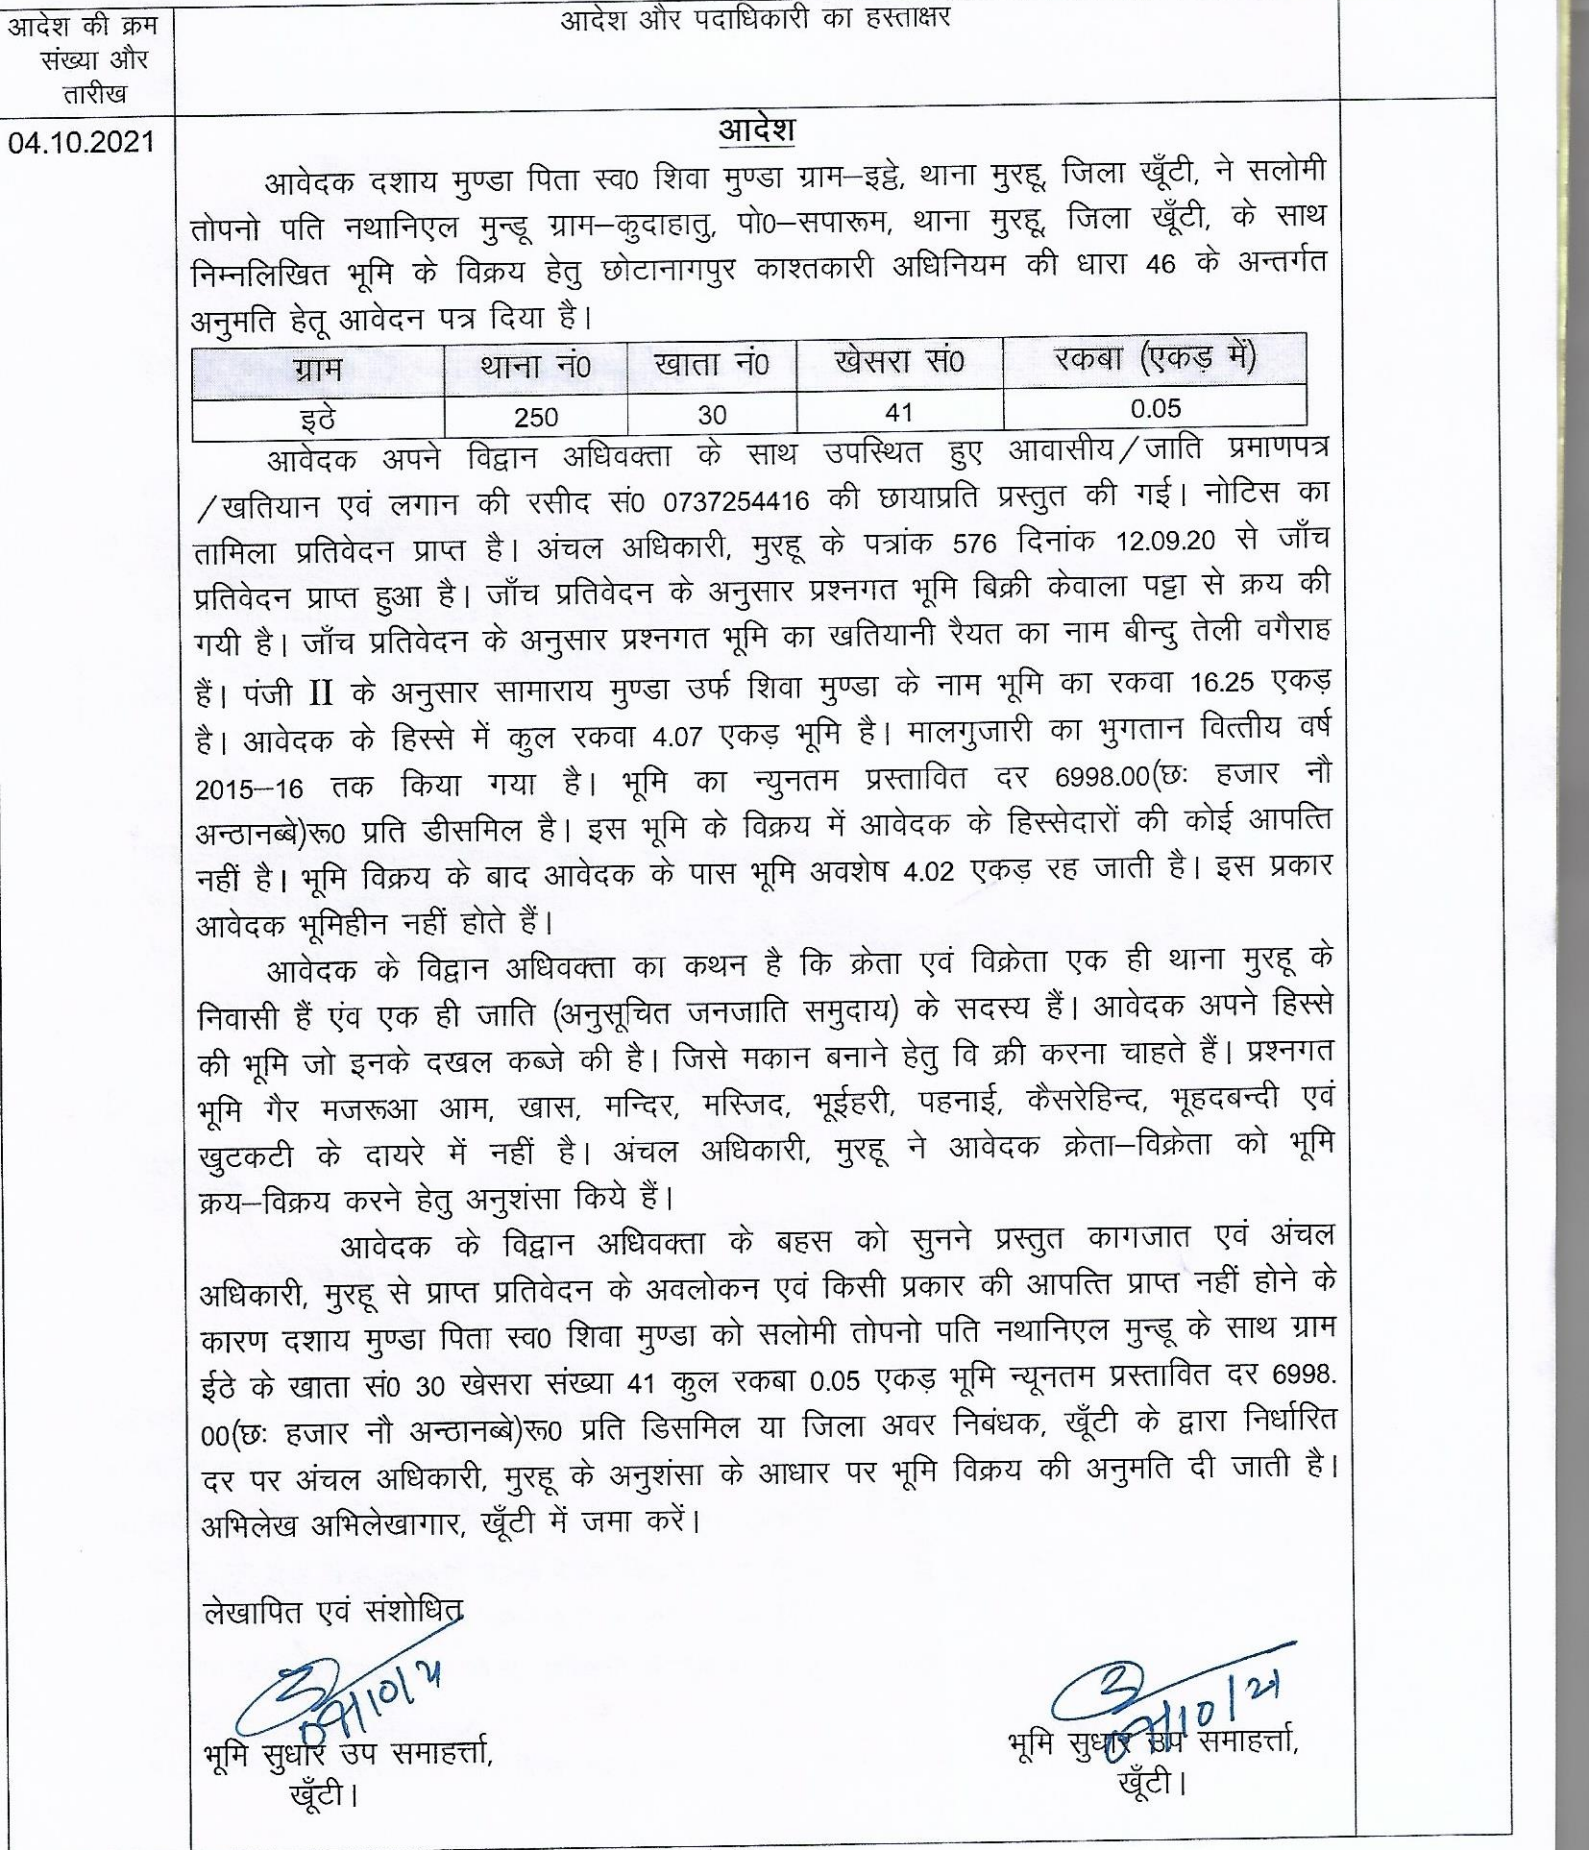 आदेश की क्रम
संख्या और
तारीख
आदेश और पदाधिकारी का हस्ताक्षर
04.10.2021
आदेश
आवेदक दशाय मुण्डा पिता स्व0 शिवा मुण्डा ग्राम–इट्ठे, थाना मुरहू, जिला खूँटी, ने सलोमी
तोपनो पति नथानिएल मुन्डू ग्राम–कुदाहातु, पो0–सपारूम, थाना मुरहू, जिला खूँटी, के साथ
निम्नलिखित भूमि के विक्रय हेतु छोटानागपुर काश्तकारी अधिनियम की धारा 46 के अन्तर्गत
अनुमति हेतू आवेदन पत्र दिया है।
ग्राम थाना नं0 खाता नं0 खेसरा सं0 रकबा (एकड़ में)
इठे 250 30 41 0.05
आवेदक अपने विद्वान अधिवक्ता के साथ उपस्थित हुए आवासीय/जाति प्रमाणपत्र
/खतियान एवं लगान की रसीद सं0 0737254416 की छायाप्रति प्रस्तुत की गई। नोटिस का
तामिला प्रतिवेदन प्राप्त है। अंचल अधिकारी, मुरहू के पत्रांक 576 दिनांक 12.09.20 से जाँच
प्रतिवेदन प्राप्त हुआ है। जाँच प्रतिवेदन के अनुसार प्रश्नगत भूमि बिक्री केवाला पट्टा से क्रय की
गयी है। जाँच प्रतिवेदन के अनुसार प्रश्नगत भूमि का खतियानी रैयत का नाम बीन्दु तेली वगैराह
हैं। पंजी II के अनुसार सामाराय मुण्डा उर्फ शिवा मुण्डा के नाम भूमि का रकवा 16.25 एकड़
है। आवेदक के हिस्से में कुल रकवा 4.07 एकड़ भूमि है। मालगुजारी का भुगतान वित्तीय वर्ष
2015–16 तक किया गया है। भूमि का न्युनतम प्रस्तावित दर 6998.00(छः हजार नौ
अन्ठानब्बे)रू0 प्रति डीसमिल है। इस भूमि के विक्रय में आवेदक के हिस्सेदारों की कोई आपत्ति
नहीं है। भूमि विक्रय के बाद आवेदक के पास भूमि अवशेष 4.02 एकड़ रह जाती है। इस प्रकार
आवेदक भूमिहीन नहीं होते हैं।
आवेदक के विद्वान अधिवक्ता का कथन है कि क्रेता एवं विक्रेता एक ही थाना मुरहू के
निवासी हैं एंव एक ही जाति (अनुसूचित जनजाति समुदाय) के सदस्य हैं। आवेदक अपने हिस्से
की भूमि जो इनके दखल कब्जे की है। जिसे मकान बनाने हेतु वि क्री करना चाहते हैं। प्रश्नगत
भूमि गैर मजरूआ आम, खास, मन्दिर, मस्जिद, भूईहरी, पहनाई, कैसरेहिन्द, भूहदबन्दी एवं
खुटकटी के दायरे में नहीं है। अंचल अधिकारी, मुरहू ने आवेदक क्रेता–विक्रेता को भूमि
क्रय–विक्रय करने हेतु अनुशंसा किये हैं।
आवेदक के विद्वान अधिवक्ता के बहस को सुनने प्रस्तुत कागजात एवं अंचल
अधिकारी, मुरहू से प्राप्त प्रतिवेदन के अवलोकन एवं किसी प्रकार की आपत्ति प्राप्त नहीं होने के
कारण दशाय मुण्डा पिता स्व0 शिवा मुण्डा को सलोमी तोपनो पति नथानिएल मुन्डू के साथ ग्राम
ईठे के खाता सं0 30 खेसरा संख्या 41 कुल रकबा 0.05 एकड़ भूमि न्यूनतम प्रस्तावित दर 6998.
00(छः हजार नौ अन्ठानब्बे)रू0 प्रति डिसमिल या जिला अवर निबंधक, खूँटी के द्वारा निर्धारित
दर पर अंचल अधिकारी, मुरहू के अनुशंसा के आधार पर भूमि विक्रय की अनुमति दी जाती है।
अभिलेख अभिलेखागार, खूँटी में जमा करें।
लेखापित एवं संशोधित
भूमि सुधार उप समाहर्त्ता,
खूँटी।
भूमि सुधार उप समाहर्त्ता,
खूँटी।